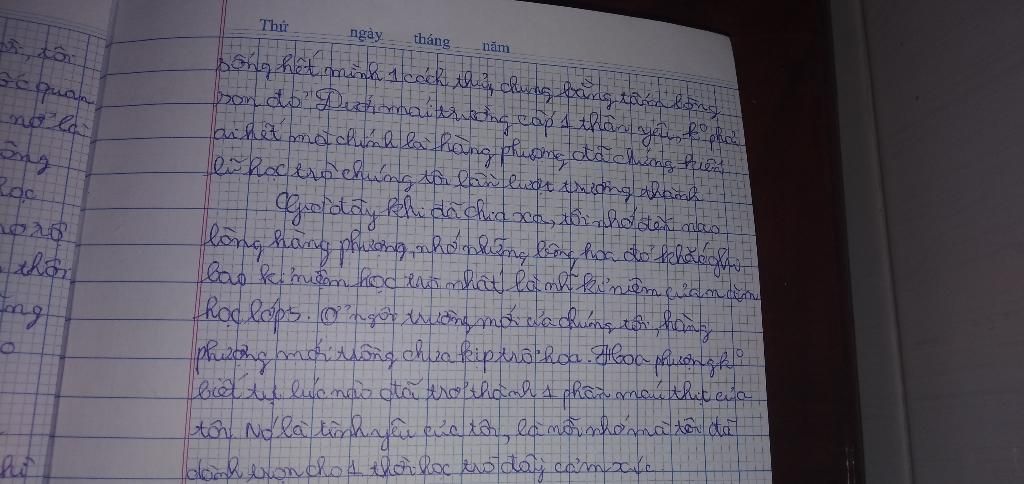 Thứ ngày tháng năm
sống hết mình 1 cách thuỷ chung bằng tấm lòng
son đỏ. Dưới mái trường cấp 1 thân yêu, ko phải
ai hết mà chính là hàng phượng đã chứng kiến
lũ học trò chúng tôi lần lượt trưởng thành
Giờ đây khi đã chia xa, tôi nhớ đến nao
lòng hàng phượng, nhớ những bông hoa đỏ khắc ghi
bao kỉ niệm học trò nhất là kỉ niệm của năm
học lớp 5. Ở ngôi trường mới của chúng tôi, hàng
phượng mới trồng chưa kịp trổ hoa. Hoa phượng ko
biết tự lúc nào đã trở thành 1 phần máu thịt của
tôi. Nó là tình yêu của tôi, là nỗi nhớ mà tôi đã
dành trọn cho 1 thời học trò đầy cảm xúc
ốc quan
nó là
ông
học
thân